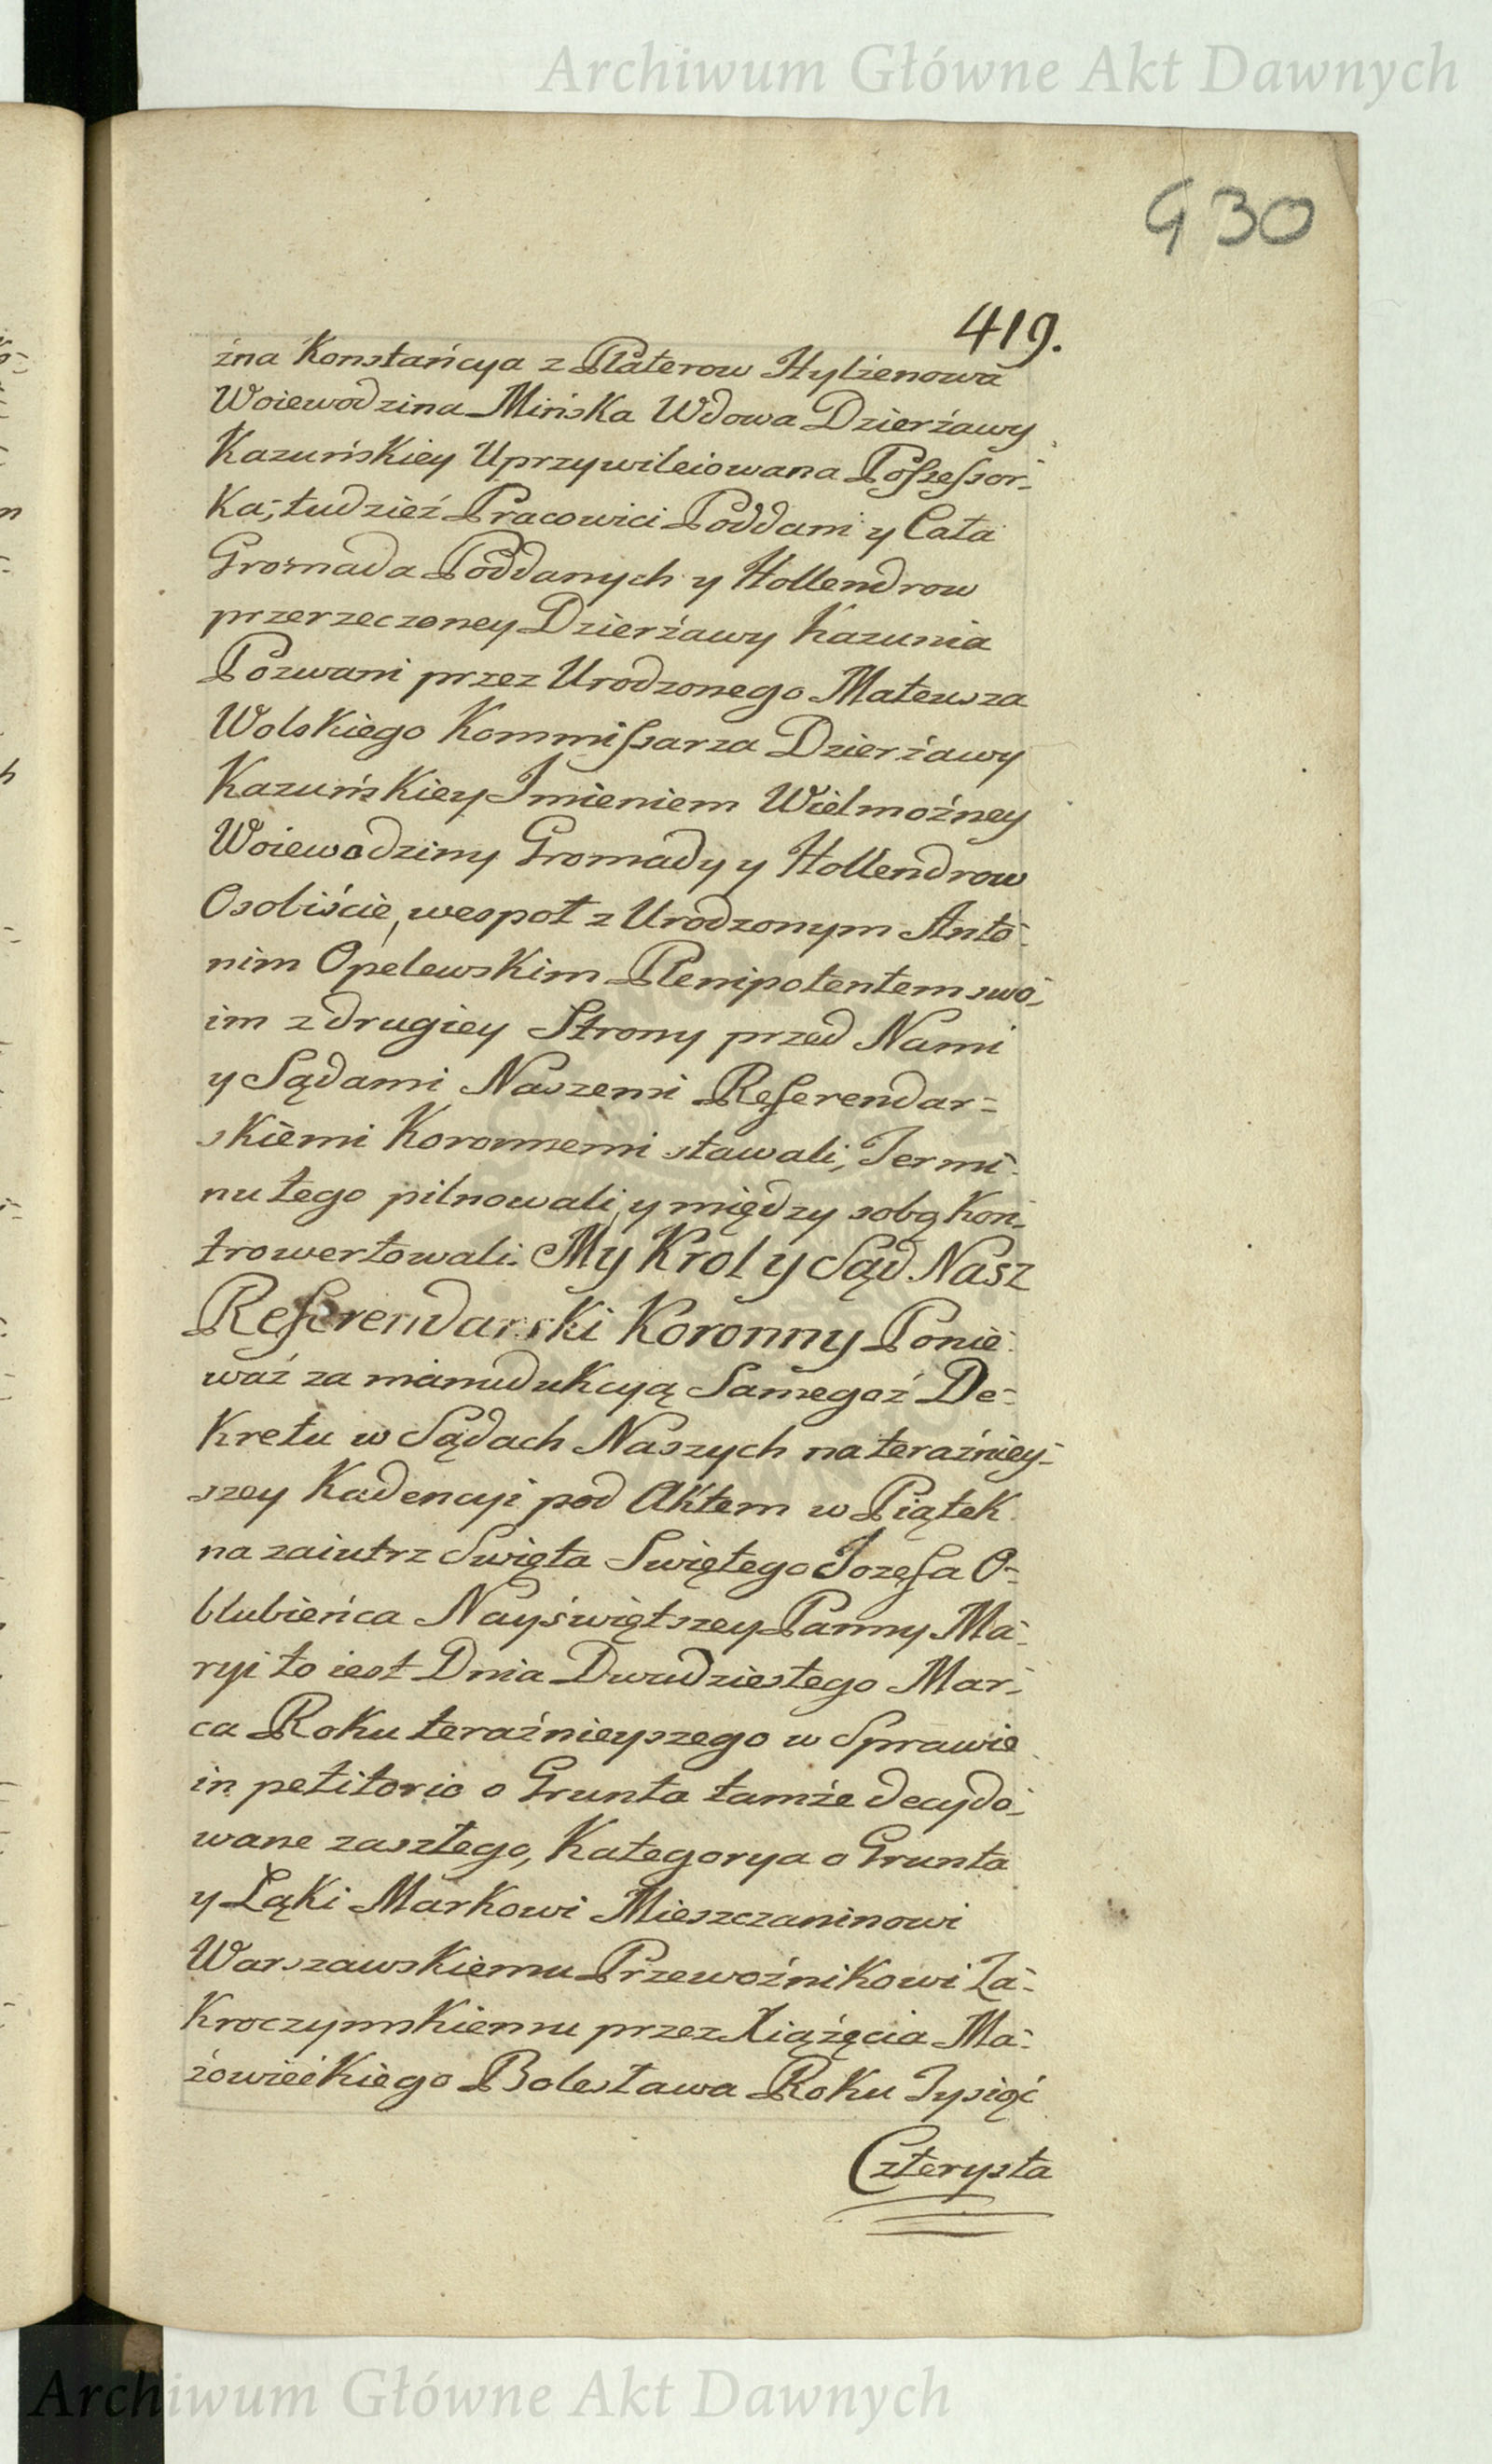 Archiwum Główne Akt Dawnych
930
419.
żna Konstańcya z Platerow Hylżenowa
Woiewodzina Mińska Wdowa Dzierżawy
Kazuńskiey Uprzywileiowana Possessor-
ka; tudzież Pracowici Poddani y Cała
Gromada Poddanych y Hollendrow
przerzeczoney Dzierżawy Kazunia
Pozwani przez Urodzonego Mateusza
Wolskiego Kommissarza Dzierżawy
Kazuńskiey Imieniem Wielmożney
Woiewodziny Gromady y Hollendrow
Osobiście, wespoł z Urodzonym Anto-
nim Opelewskim Plenipotentem swo-
im z drugiey Strony przed Nami
y Sądami Naszemi Referendar-
skiemi Koronnemi stawali, Termi-
nu tego pilnowali, y między sobą kon-
trowertowali. My Krol y Sąd Nasz
Referendarski Koronny Ponie-
waż za manudukcyą Samegoż De-
kretu w Sądach Naszych na teraźniey-
szey Kadencyi pod Aktem w Piątek
na zaiutrz Swięta Swiętego Jozefa O-
blubieńca Nayświętszey Panny Ma-
ryi to iest Dnia Dwudziestego Mar-
ca Roku teraźnieyszego w Sprawie
in petitorio o Grunta tamże decydo-
wane zaszłego, Kategorya o Grunta
y Łąki Markowi Mieszczaninowi
Warszawskiemu Przewoźnikowi Za-
kroczymskiemu przez Xiążęcia Ma-
zowieckiego Bolesława Roku Tysiąc
Czterysta
Archiwum Główne Akt Dawnych